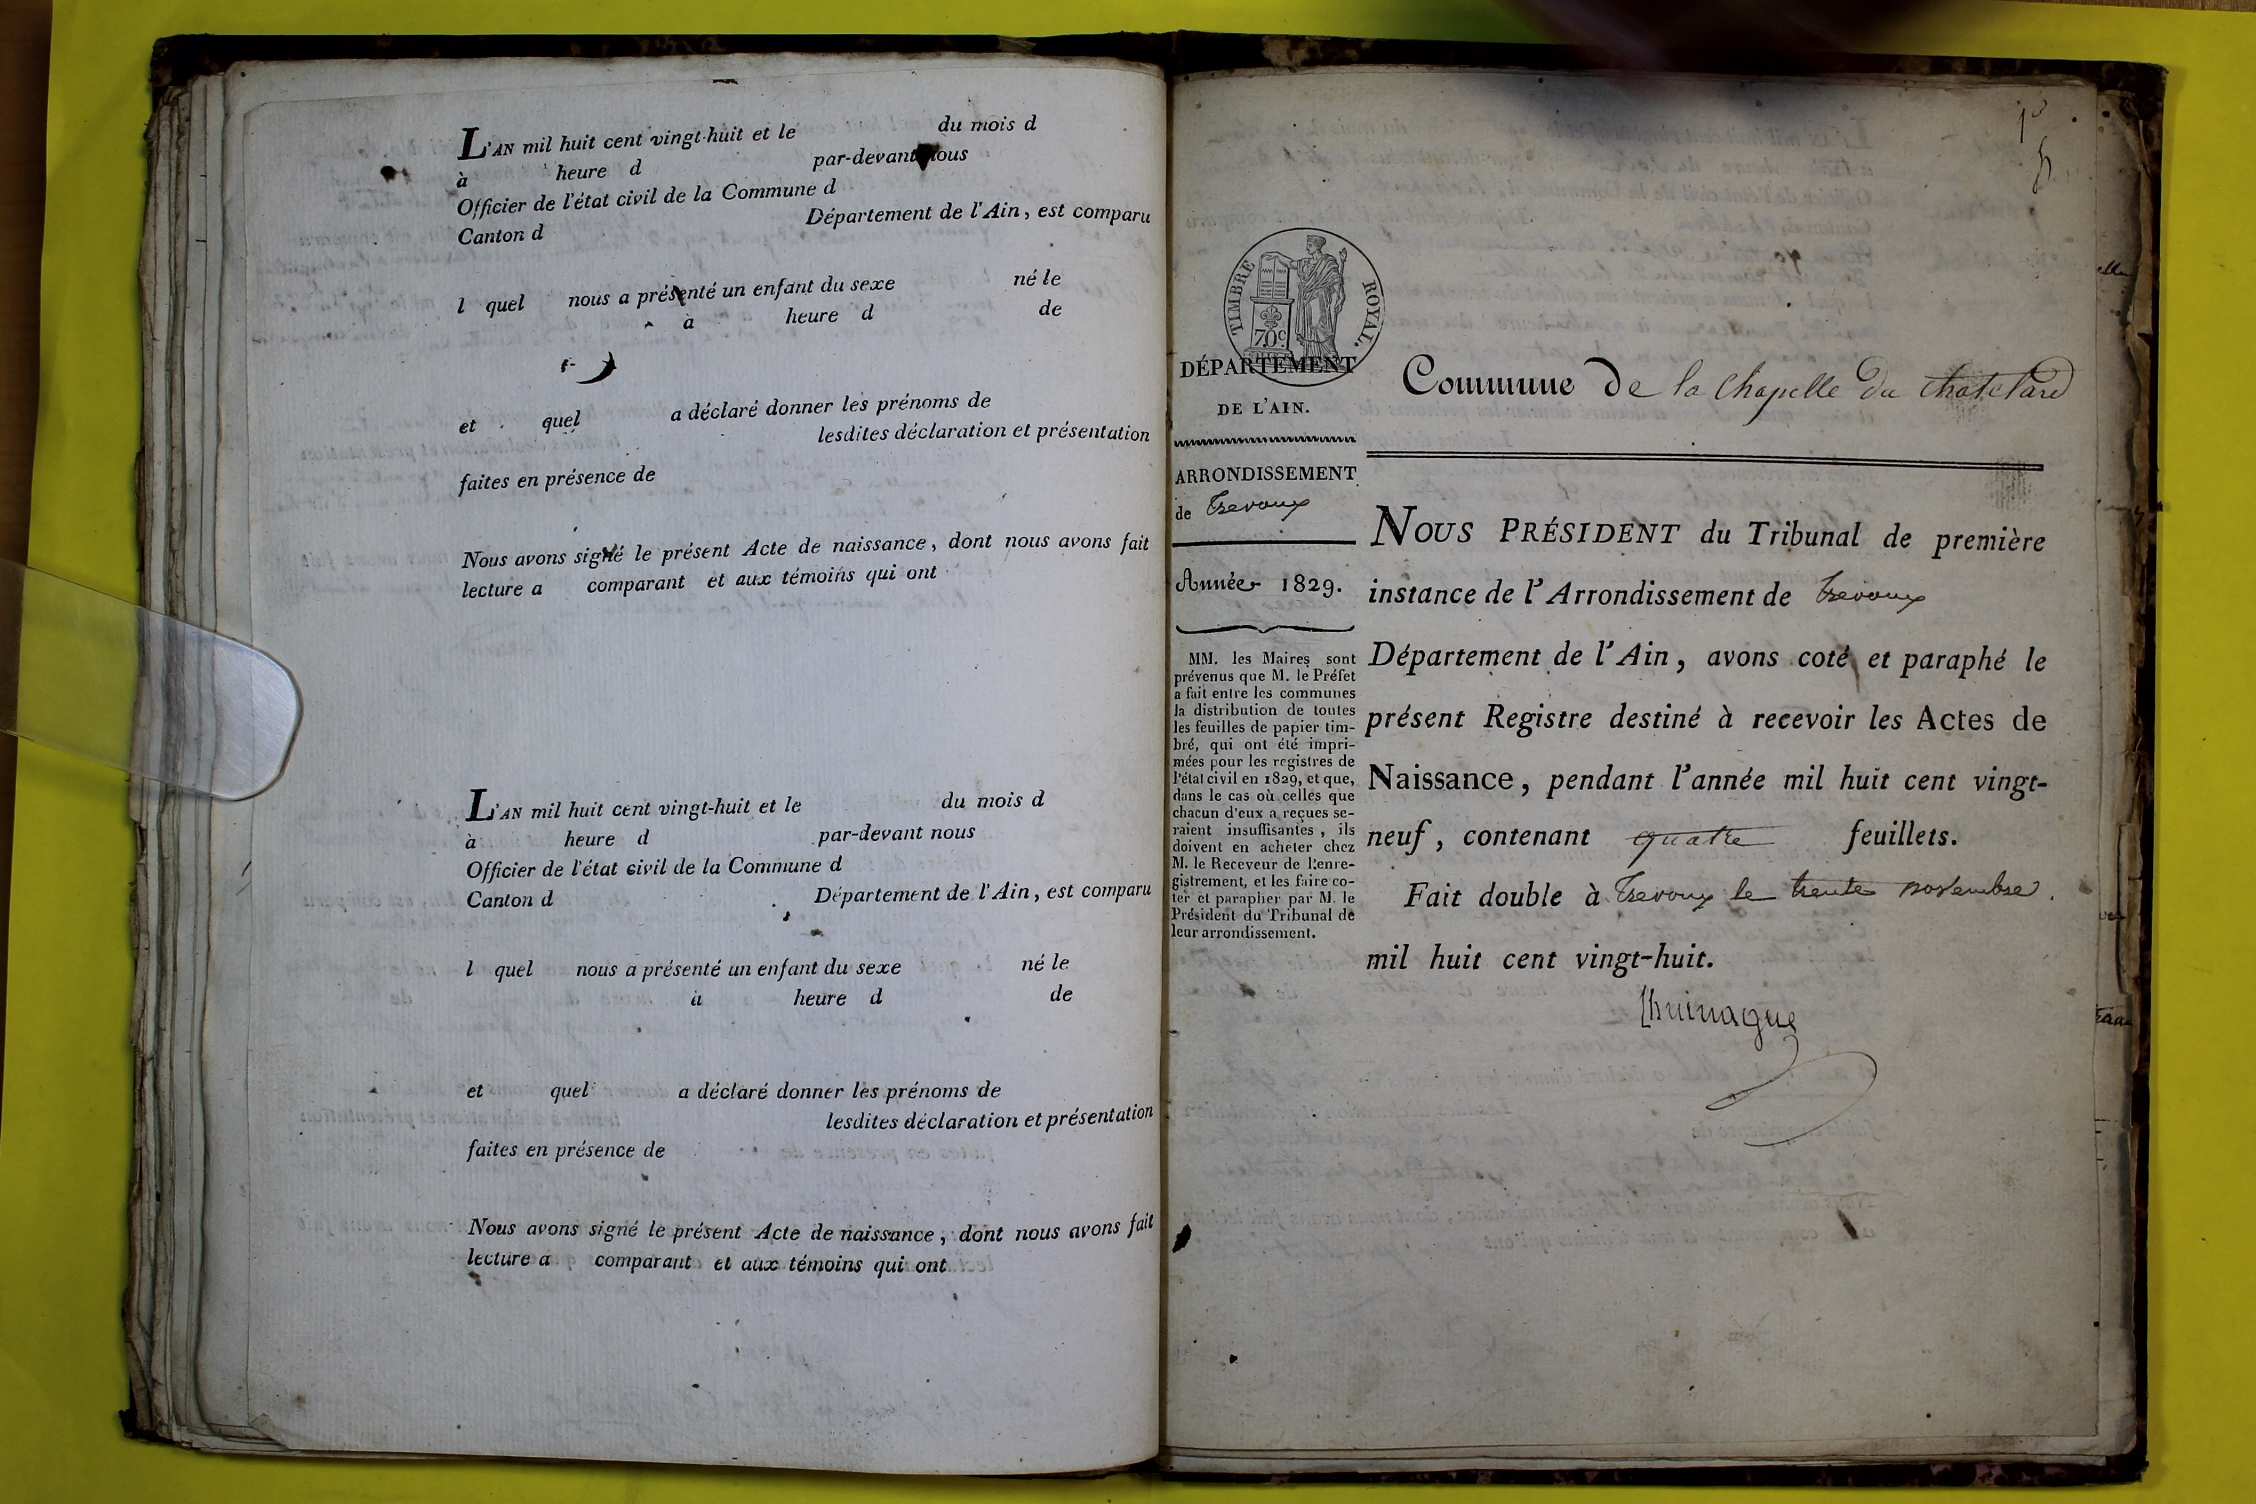 L'AN mil huit cent vingt-huit et le du mois d
à heure d par-devant nous
Officier de l'état civil de la Commune d
Canton d Département de l'Ain, est comparu
l quel nous a présenté un enfant du sexe né le
à heure d de
et quel a déclaré donner les prénoms de
lesdites déclaration et présentation
faites en présence de
Nous avons signé le présent Acte de naissance, dont nous avons fait
lecture a comparant et aux témoins qui ont
L'AN mil huit cent vingt-huit et le du mois d
à heure d par-devant nous
Officier de l'état civil de la Commune d
Canton d Département de l'Ain, est comparu
l quel nous a présenté un enfant du sexe né le
à heure d de
et quel a déclaré donner les prénoms de
lesdites déclaration et présentation
faites en présence de
Nous avons signé le présent Acte de naissance, dont nous avons fait
lecture a comparant et aux témoins qui ont
TIMBRE ROYAL.
70c.
DÉPARTEMENT
DE L'AIN.
ARRONDISSEMENT
de Trevoux
Année 1829.
MM. les Maires sont
prévenus que M. le Préfet
a fait entre les communes
la distribution de toutes
les feuilles de papier tim-
bré, qui ont été impri-
mées pour les registres de
l'état civil en 1829, et que,
dans le cas où celles que
chacun d'eux a reçues se-
raient insuffisantes, ils
doivent en acheter chez
M. le Receveur de l'enre-
gistrement, et les faire co-
ter et parapher par M. le
Président du Tribunal de
leur arrondissement.
Commune De la Chapelle du Chatelard
NOUS PRÉSIDENT du Tribunal de première
instance de l'Arrondissement de Trevoux
Département de l'Ain, avons coté et paraphé le
présent Registre destiné à recevoir les Actes de
Naissance, pendant l'année mil huit cent vingt-
neuf, contenant quatre feuillets.
Fait double à Trevoux le trente novembre
mil huit cent vingt-huit.